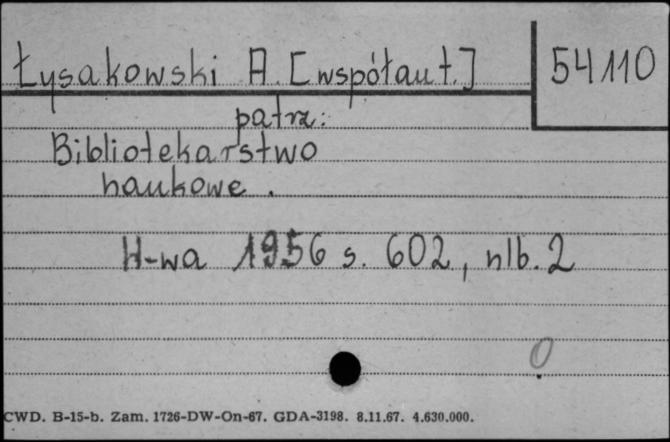 Łysakowski A. [współaut.] 54110
patrz:
Bibliotekarstwo
naukowe.
W-wa 1956 s. 602, nlb. 2
0
CWD. B-15-b. Zam. 1726-DW-On-67. GDA-3198. 8.11.67. 4.630.000.